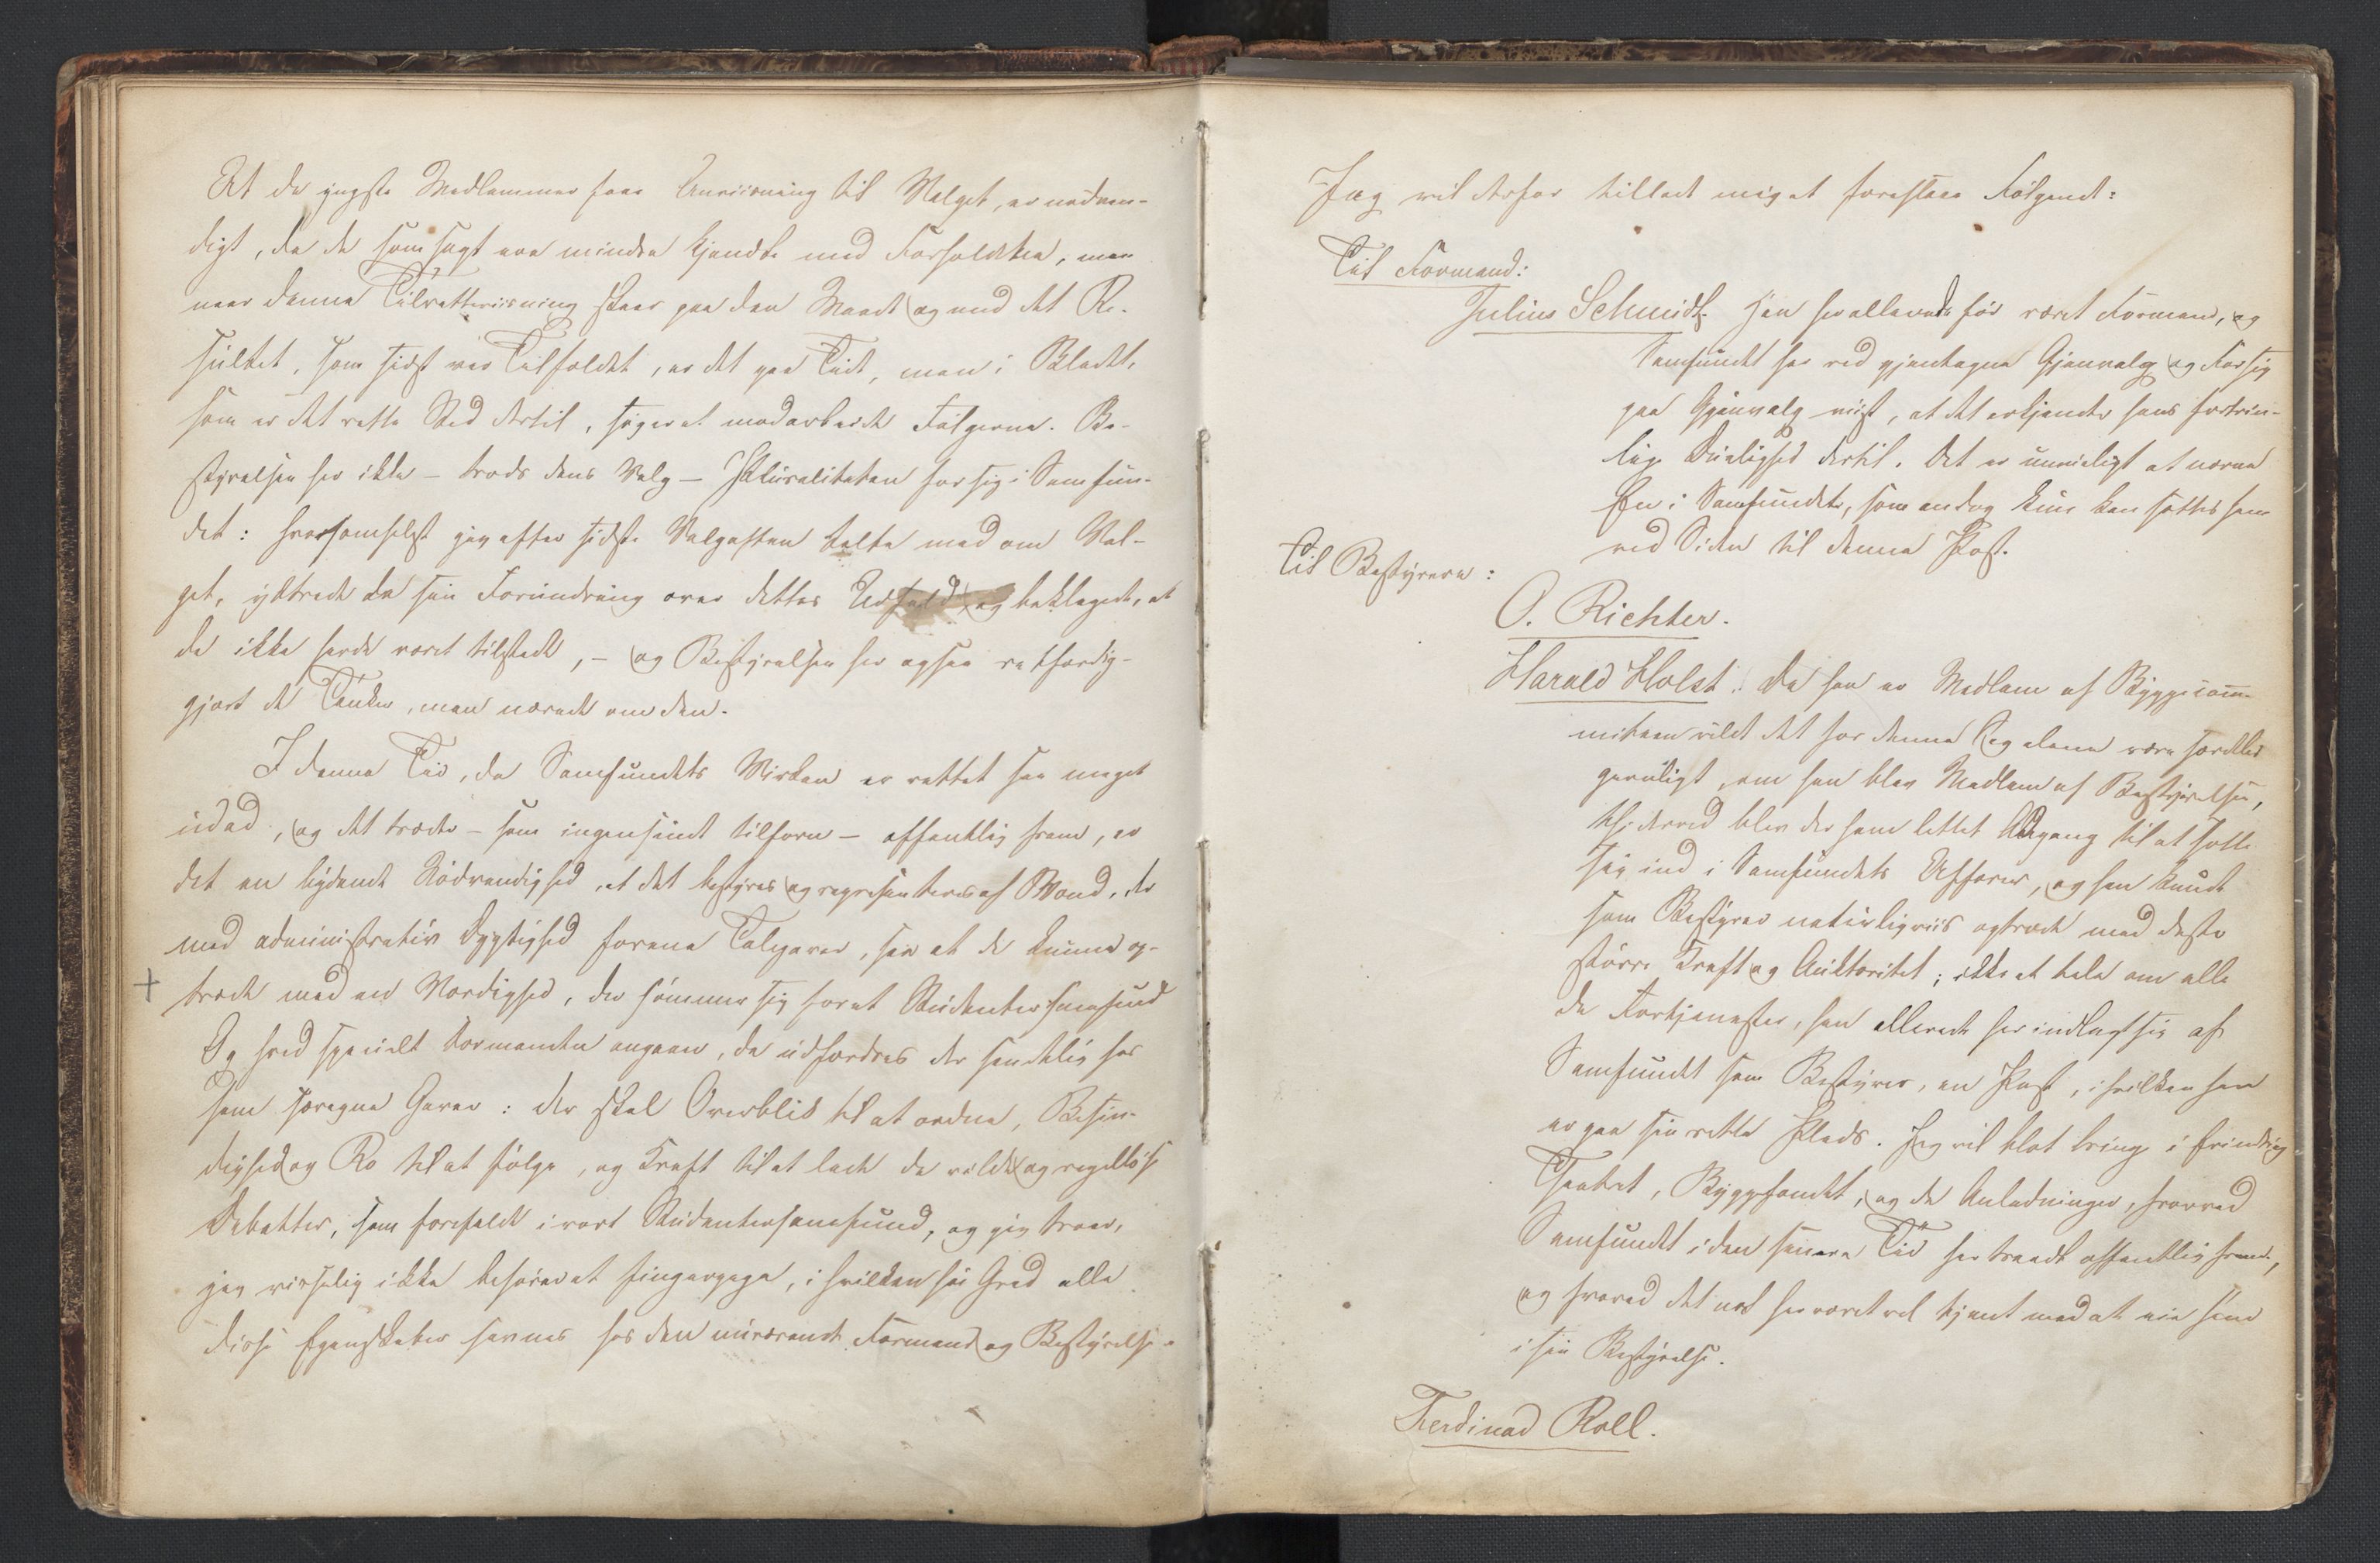 At de yngste Medlemmer faae Anviisning til Valget, er nødven-
digt, da de som sagt ere mindre kjendte med Forholdene, men
naar denne Tilretteviisning skeer paa den Maade og med det Re-
sultat, som sidst var Tilfældet, er det paa Tide, man i Bladet,
som er det rette Sted dertil, søger at modarbeide Følgerne. Be-
styrelsen har ikke – trods dens Valg – Pluraliteten for sig i Samfun-
det: hvorsomhelst jeg efter sidste Valgaften talte med om Val-
get, yttrede de sin Forundring over dettes Udfald og beklagede, at
de ikke havde været tilstede, – og Bestyrelsen har ogsaa retfærdig-
gjort de Tanker, man nærede om den.
I denne Tid, da Samfundets Virken er rettet saa meget
udad, og det træder – som ingensinde tilforn – offentlig frem, er
det en lydende Nødvendighed, at det bestyres og repræsenteres af Mænd, der
med administrativ Dygtighed forene Talegaver, saa at de kunne op-
træde med en Værdighed, der sømmer sig for et Studentersamfund
Og hvad specielt Formanden angaaer, da udfordres der sandelig hos
ham særegne Gaver: der skal Overblik til at ordne, Besin-
dighed og Ro til at følge, og Kraft til at lede de vilde og regelløse
Debatter, som forefalde i vort Studentersamfund, og jeg troer,
jeg virkelig ikke behøver at fingerpege, i hvilken høi Grad alle
disse Egenskaber savnes hos den nuværende Formand og Bestyrelse.
Jeg vil derfor tillade mig at foreslaae Følgende:
Til Formand:
Julius Schmidt. Han har allerede før været Formand, og
Samfundet har ved gjentagne Gjenvalg og Forsøg
paa Gjenvalg viist, at det erkjender hans fortrin-
lige Duelighed dertil. Det er umuligt at nævne
En i Samfundet, som endog kun kan sættes ham
ved Siden til denne Post.
Til Bestyrere:
O. Richter.
Harald Holst. Da han er Medlem af Byggecom-
miteen vilde det for denne Sag alene være særdeles
gavnligt, om han blev Medlem af Bestyrelsen,
thi derved blev der ham lettet Adgang til at sætte
sig ind i Samfundets Affærer, og han kunde
som Bestyrer naturligviis optræde med desto
større Kraft og Auktoritet; ikke at tale om alle
de Fortjenester, han allerede har indlagt sig af
Samfundet som Bestyrer, en Post, i hvilken han
er paa sin rette Plads. Jeg vil blot bringe i Erindring
Theatret, Byggefondet, og de Anledninger, hvorved
Samfundet i den senere Tid har traadt offentlig frem,
og hvorved det nok har været vel tjent med at eie ham
i sin Bestyrelse.
Ferdinad Roll.